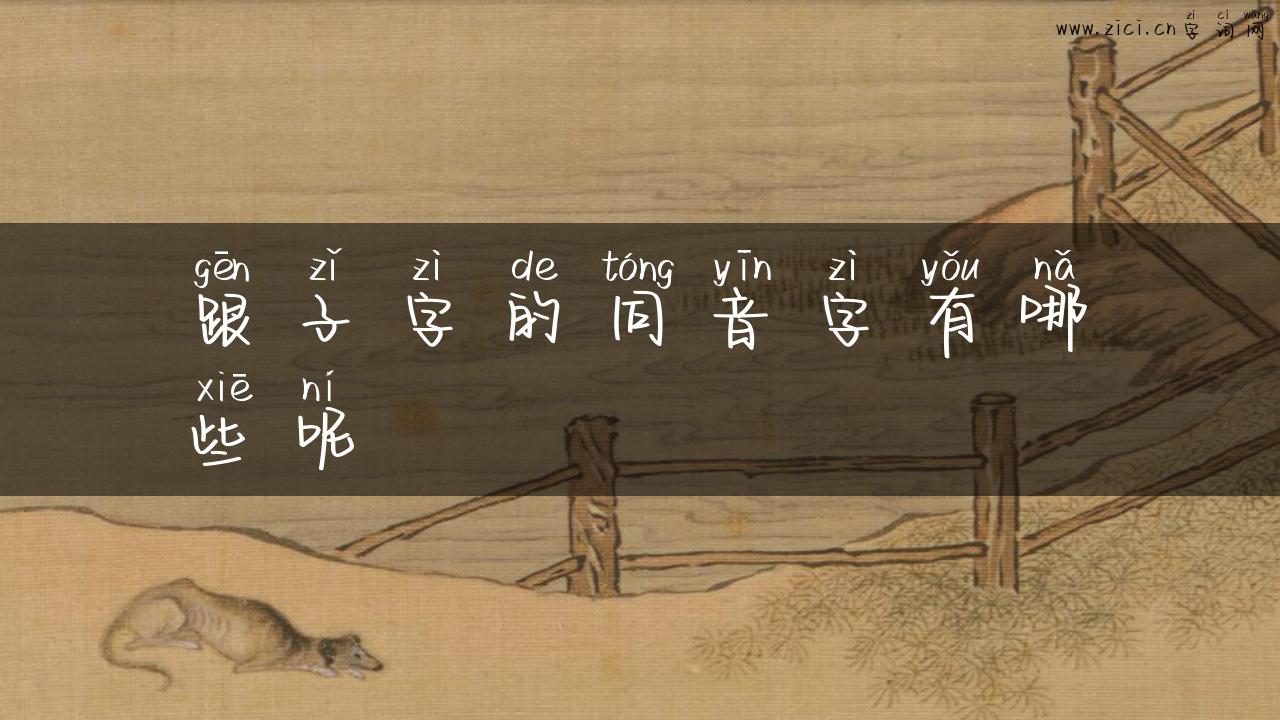 zì cí wǎng
www.zici.cn 字词网
gēn zǐ zì de tóng yīn zì yǒu nǎ
跟子字的同音字有哪
xiē ní
些呢